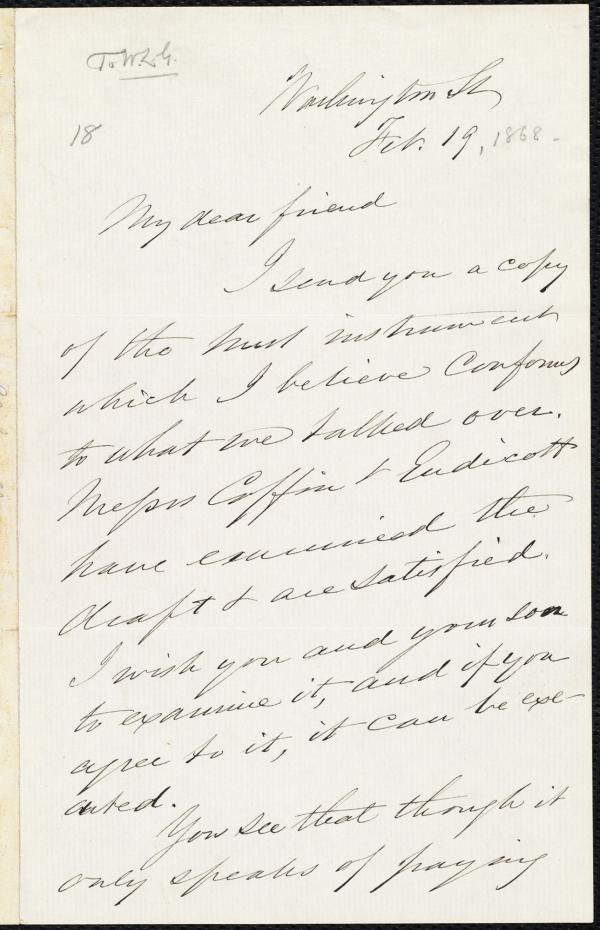 To W.L.G.
Washington St
18
Feb. 19, 1868.
My dear friend
I send you a copy
of the trust instrument
which I believe conforms
to what we talked over.
Messrs Coffin & Endicott
have examined the
draft & are satisfied.
I wish you and your son
to examine it, and if you
agree to it, it can be exe-
cuted.
You see that though it
only speaks of paying